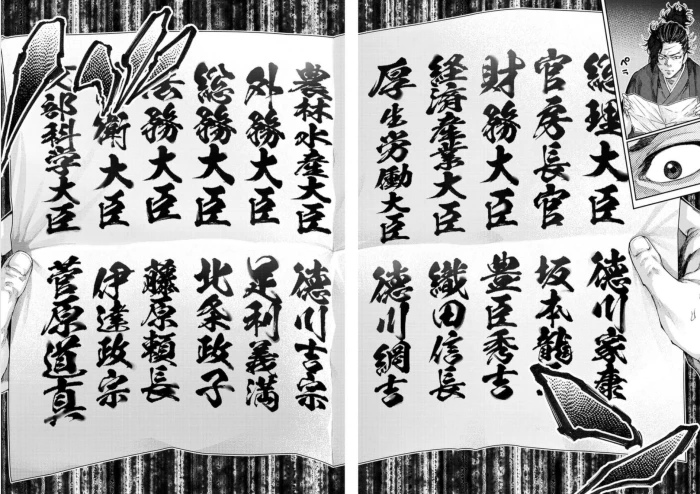 総理大臣
徳川家康
官房長官
坂本龍
財務大臣
豊臣秀吉
経済産業大臣
織田信長
厚生労働大臣
徳川綱吉
農林水産大臣
徳川吉宗
外務大臣
足利義満
総務大臣
北条政子
法務大臣
藤原頼長
衛大臣
伊達政宗
文部科学大臣
菅原道真
ペラ